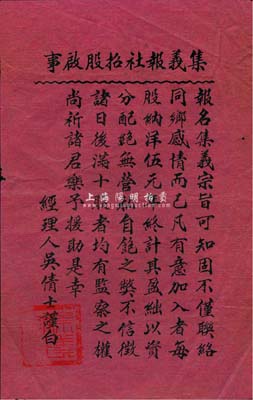 集義報社招股啟事
報名集義宗旨可知固不僅聯絡
同鄉感情而已凡有意加入者每
股納洋伍元年終計其盈絀以資
分配絕無營私自飽之獘不信徵
諸日後滿十股者均有監察之權
尚祈諸君樂予援助是幸
經理人吳倩士謹白
上海陽明拍賣